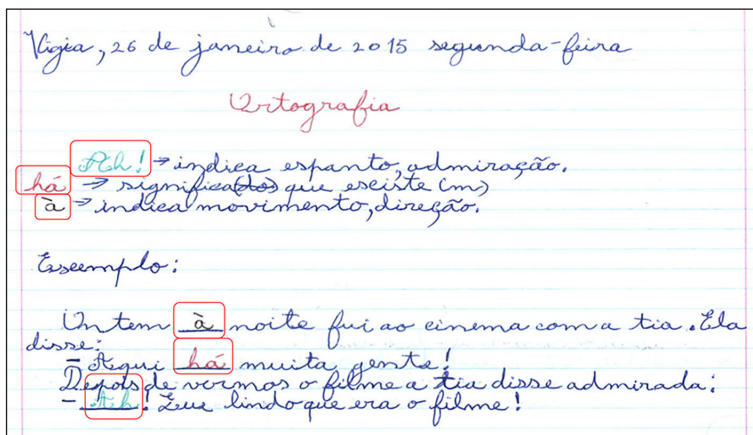 Vigia, 26 de janeiro de 2015 segunda-feira
Ortografia
Ah! → indica espanto, admiração.
há → significa(do) que esciste (m)
à → indica movimento, direção.
Escemplo:
On tem à noite fui ao cinema com a tia. Ela
disse:
– Aqui há muita gente!
Depois de vermos o filme a tia disse admirada:
– Ah! Que lindo que era o filme!